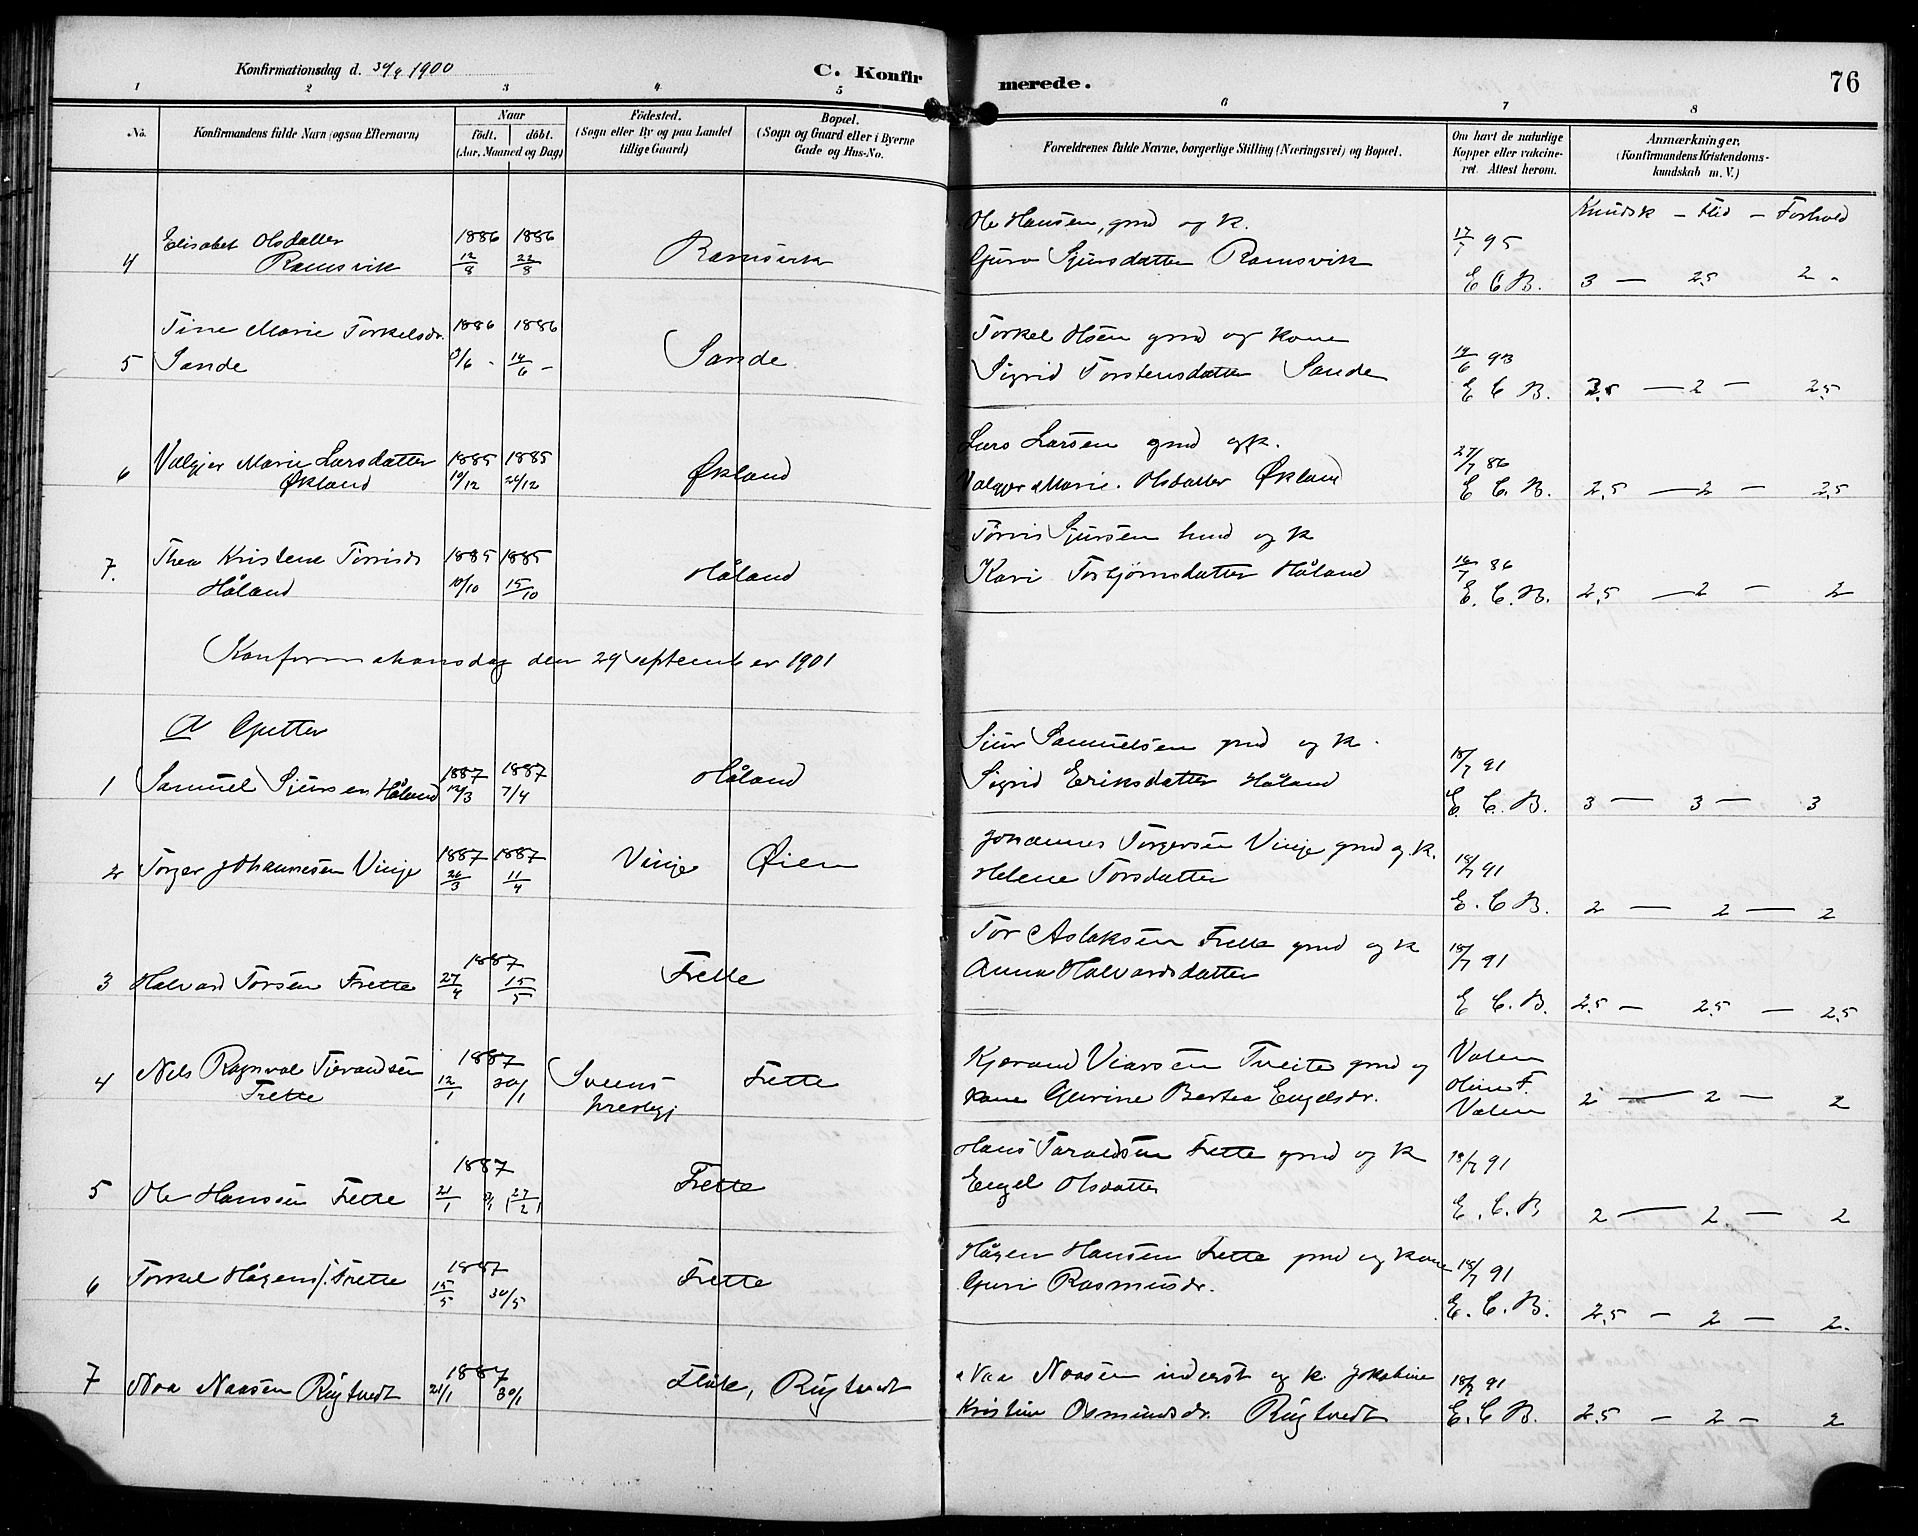 Konfirmationsdag d. 30/9 1900
C. Konfirmerede.
76
1 2 3 4 5 6 7 8
No.
Konfirmandens fulde Navn (ogsaa Efternavn)
Naar
födt. döbt.
(Aar, Maaned og Dag)
Födested.
(Sogn eller By og paa Landet
tillige Gaard)
Bopæl.
(Sogn og Gaard eller i Byerne
Gade og Hus-No.
Forældrenes fulde Navne, borgerlige Stilling (Næringsvei) og Bopæl.
Om havt de naturlige
Kopper eller vakcine-
ret. Attest herom.
Anmærkninger,
(Konfirmandens Kristendoms-
kundskab m. V.)
Kundsk – Flid – Forhold
4 Elisabet Olsdatter 1886 1886 Ole Hansen, grd og k.
Ramsvik 12/8 22/8 Ramsvik Guro Sjursdatter Ramsvik 17/7 95
E C B. 3 — 2,5 2 -
Tine Marie Torkelsdr. 1886 1886 Torkel Olsen grd og kone
5 Sande 3/6 - 14/6 - Sande Sigrid Torstensdatter Sande 14/6 93
E C B. 2,5 — 2 — 2,5
6 Valgjer Marie Larsdatter 1885 1885 Lars Larsen grd og k.
Økland 19/12 24/12 Økland Valgjer Marie Olsdatter Økland 27/7 86
E. C. B. 2,5 — 2 — 2,5
7. Thea Kristene Torrisdr 1885 1885 Torris Sjursen hmd og k
Håland 10/10 15/10 Håland Kari Torbjørnsdatter Håland 16/7 86
E. C. B. 2,5 — 2 — 2
Konfirmationsdag den 29 september 1901
A Gutter
1 Samuel Sjursen Håland 1887 1887 Håland Sjur Samuelsen grd og k.
12/3 7/4 Sigrid Eriksdatter Håland 18/7 91
E. C. B. 3 — 3 — 3
2 Torger Johannesen Vinje 1887 1887 Vinje Øien Johannes Torgersen Vinje grd og k.
26/3 11/4 Helene Torsdatter 18/7 91
E. C. B. 2 — 2 — 2
3 Halvard Torsen Frette 1887 Frette Tor Aslaksen Frette grd og k
27/4 15/5 Anna Halvardsdatter 18/7 91
E C. B. 2,5 — 2,5 — 2,5
4 Nils Ragnvald Tjerandsen 1887 Sveens Frette Kjerand Viarsen Tveite grd og Valen
Frette 12/1 30/1 prestegj kone Gurine Bertea Engelsdr. Oline F.
Valen 2 — 2 — 2
5 Ole Hansen Frette 1887 Frette Hans Taraldsen Frette grd og k 18/7 91
21/1 (27/2) Engel Olsdatter
E. C. B 2 — 2. — 2
6 Torkel Hågens. Frette 1887 Frette Hågen Hansen Frette grd og kone 18/7 91
15/5 30/5 Guri Rasmusdr.
E. C. B. 2,5 — 2 — 2.
7 Noa Naasen Rügtvedt 1887 Fløte, Rügtvedt Naa Naasen inderst og k. Jakobine 18/7 91
21/1 30/1 Kristine Osmundsdr. Rügtvedt E. C B. 2,5 — 2 — 2